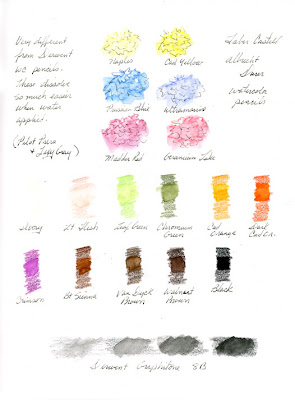 Very different
from Derwent
w/c pencils.
These dissolve
so much easier
when water
applied.
(Pilot Precise
Naples
Cad Yellow
Faber Castell
Albrecht
Durer
watercolor
pencils
Prussian Blue
Ultramarine
Madder Red
Geranium Lake
Ivory
Lt Flesh
Chromium
Green
Cad
Orange
Dark
Cad
Crimson
Bt Sienna
Van Dyck
Brown
Walnut
Brown
Black
Derwent Graphitone 8B